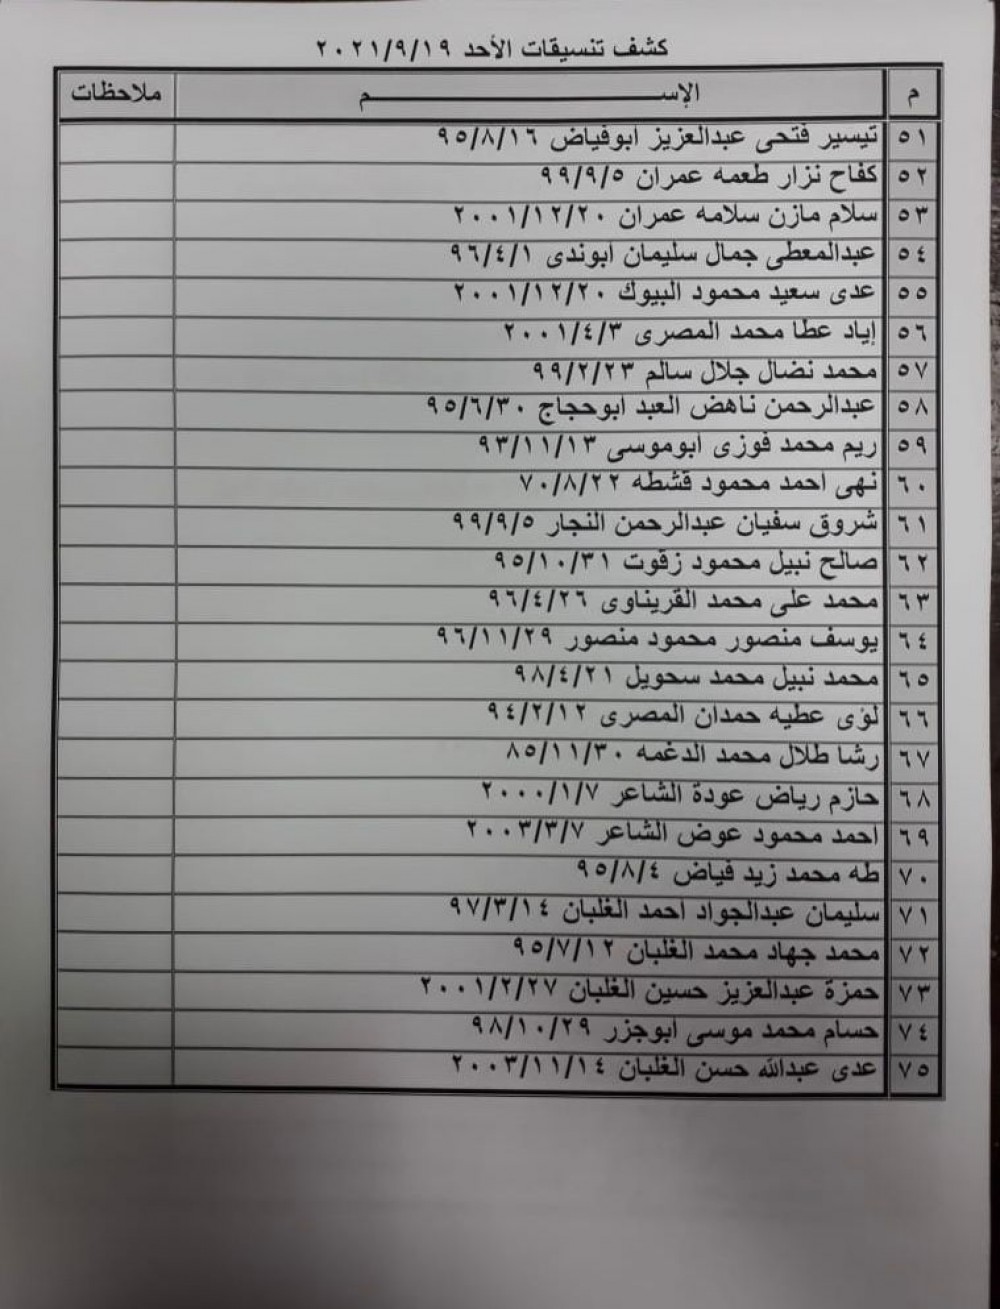 كشف تنسيقات الأحد ٢٠٢١/٩/١٩
م الإســـــــــــــــــــم ملاحظات
٥١ تيسير فتحى عبدالعزيز ابوفياض ٩٥/٨/١٦
٥٢ كفاح نزار طعمه عمران ٩٩/٩/٥
٥٣ سلام مازن سلامه عمران ٢٠٠١/١٢/٢٠
٥٤ عبدالمعطى جمال سليمان ابوندى ٩٦/٤/١
٥٥ عدى سعيد محمود البيوك ٢٠٠١/١٢/٢٠
٥٦ إياد عطا محمد المصرى ٢٠٠١/٤/٣
٥٧ محمد نضال جلال سالم ٩٩/٢/٢٣
٥٨ عبدالرحمن ناهض العبد ابوحجاج ٩٥/٦/٣٠
٥٩ ريم محمد فوزى ابوموسى ٩٣/١١/١٣
٦٠ نهى احمد محمود قشطه ٧٠/٨/٢٢
٦١ شروق سفيان عبدالرحمن النجار ٩٩/٩/٥
٦٢ صالح نبيل محمود زقوت ٩٥/١٠/٣١
٦٣ محمد على محمد القريناوى ٩٦/٤/٢٦
٦٤ يوسف منصور محمود منصور ٩٦/١١/٢٩
٦٥ محمد نبيل محمد سحويل ٩٨/٤/٢١
٦٦ لؤى عطيه حمدان المصرى ٩٤/٢/١٢
٦٧ رشا طلال محمد الدغمه ٨٥/١١/٣٠
٦٨ حازم رياض عودة الشاعر ٢٠٠٠/١/٧
٦٩ احمد محمود عوض الشاعر ٢٠٠٣/٣/٧
٧٠ طه محمد زيد فياض ٩٥/٨/٤
٧١ سليمان عبدالجواد احمد الغلبان ٩٧/٣/١٤
٧٢ محمد جهاد محمد الغلبان ٩٥/٧/١٢
٧٣ حمزة عبدالعزيز حسين الغلبان ٢٠٠١/٢/٢٧
٧٤ حسام محمد موسى ابوجزر ٩٨/١٠/٢٩
٧٥ عدى عبدالله حسن الغلبان ٢٠٠٣/١١/١٤